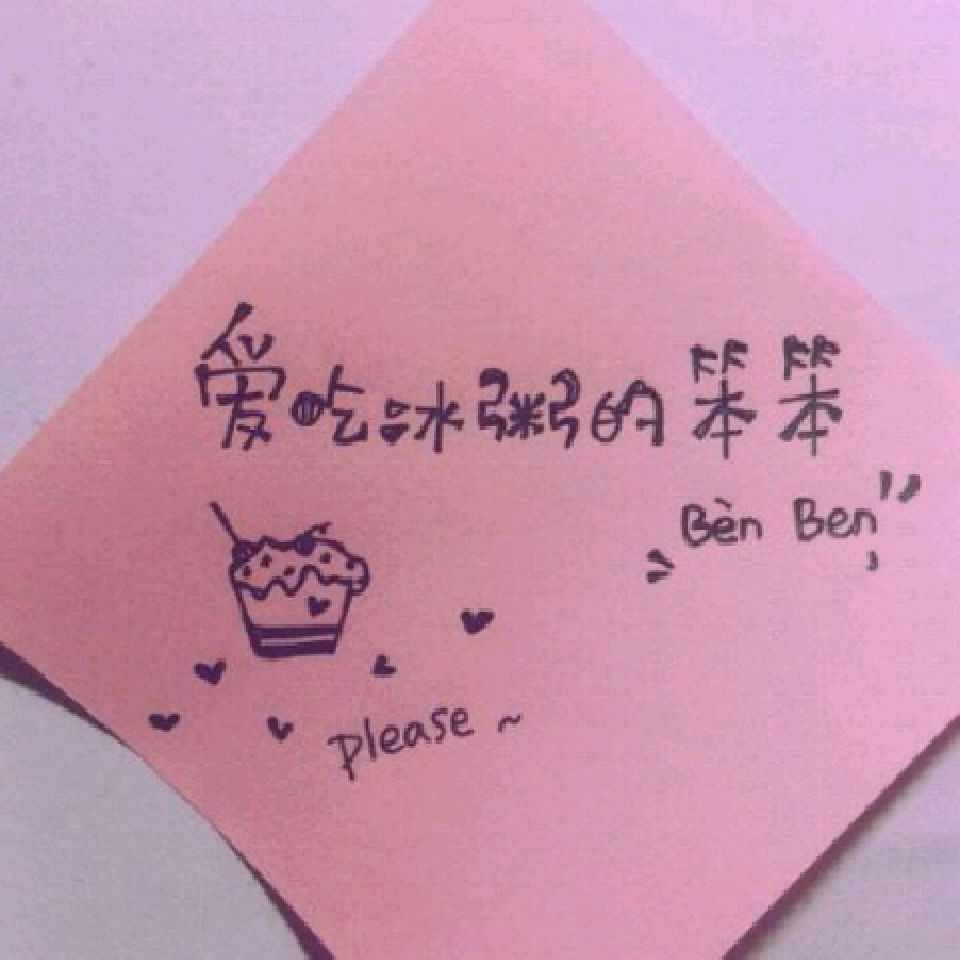 爱吃冰粥的笨笨
Bèn Ben
please ~